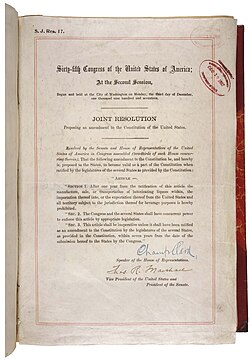 S. J. Res. 17.
Sixty-fifth Congress of the United States of America;
At the Second Session,
Begun and held at the City of Washington on Monday, the third day of December,
one thousand nine hundred and seventeen.
JOINT RESOLUTION
Proposing an amendment to the Constitution of the United States.
Resolved by the Senate and House of Representatives of the United
States of America in Congress assembled (two-thirds of each House concur-
ring therein), That the following amendment to the Constitution be, and hereby
is, proposed to the States, to become valid as a part of the Constitution when
ratified by the legislatures of the several States as provided by the Constitution:
"ARTICLE —.
"SECTION 1. After one year from the ratification of this article the
manufacture, sale, or transportation of intoxicating liquors within, the
importation thereof into, or the exportation thereof from the United States and
all territory subject to the jurisdiction thereof for beverage purposes is hereby
prohibited.
"SEC. 2. The Congress and the several States shall have concurrent power
to enforce this article by appropriate legislation.
"SEC. 3. This article shall be inoperative unless it shall have been ratified as
an amendment to the Constitution by the legislatures of the several States,
as provided in the Constitution, within seven years from the date of the
submission hereof to the States by the Congress.
Champ Clark
Speaker of the House of Representatives.
Thos. R. Marshall
Vice President of the United States and
President of the Senate.